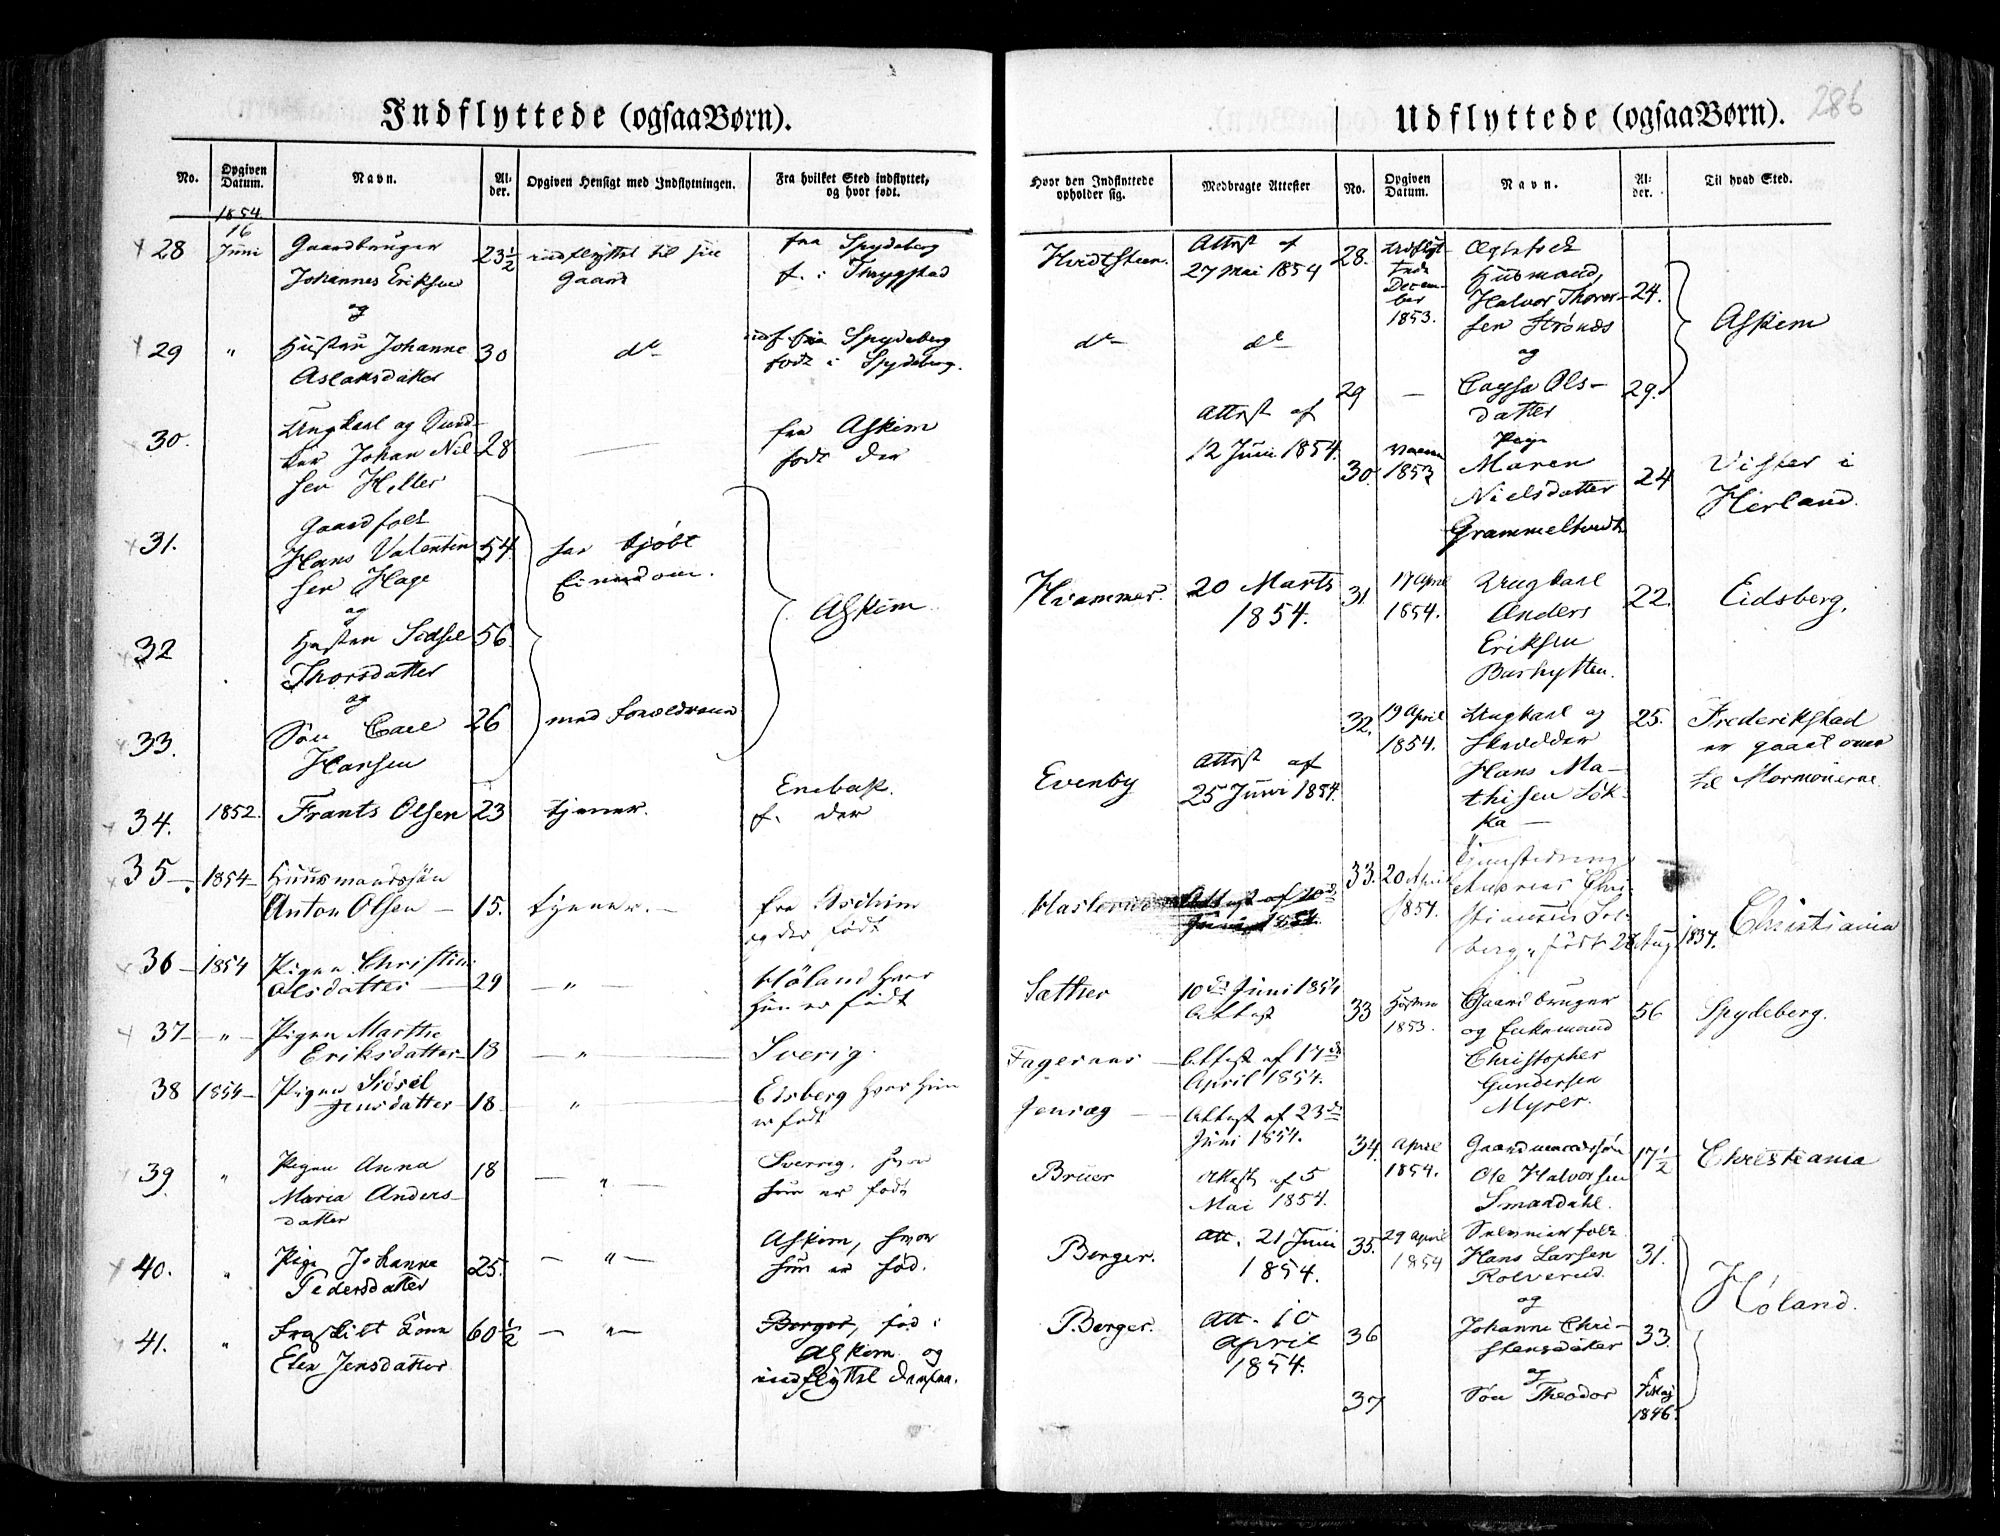 286
Indflyttede (ogsaa Børn).
No.
Opgiven Datum.
Navn.
Alder.
Opgiven Hensigt med Indflytningen.
Fra hvilket Sted indflyttet, og hvor født.
Hvor den Indflyttede opholder sig.
Medbragte Attester
1854.
28 16 Juni Gaardbruger 23½ indflyttet til sin fra Spydeberg Hvidtsteen. Attest af
Johannes Eriksen Gaard f. i Trygstad 27 Mai 1854
og
29 " Hustru Johanne 30 do indf fra Spydeberg do do
Aslaksdatter født i Spydeberg.
30. Ungkarl og 28 — fra Askim Attest af
Johan Nil- født der 12 Juni 1854.
sen Heller
31. Gaardfolk
Hans Valentin 54. har kjøbt Askim. Krammer. 20 Marts
sen Hage Eiendom. 1854.
og
32 Hustru Sidsel 56.
Thorsdatter
og
33. Søn Carl 26 med Forældrene
Hansen
34. 1852. Frants Olsen 23 tjener. Enebak. Evenby Attest af
f. der 25 Juni 1854.
35 — 1854 — Huusmandssøn
Anton Olsen — 15. tjener. — fra Aschim Attest af 10de
og der født Juni 1854.
36 — 1854 Pigen Christine
Olsdatter — 29 — " — Høland hvor Sæther 10de Juni 1854
hun er født Attest
37 — " — Pigen Marthe
Eriksdatter — 18 — " — Sverig. Attest af 17de
April 1854.
38 1854 — Pigen Sidsel
Jensdatter — 18 " Edsberg hvor hun — Attest af 23de
er født Juni 1854.
39. " Pigen Anna 18 — " — Sverrig, hvor Bruer Attest af 5
Maria Anders- hun er født Mai 1854.
datter
40. " Pige Johanne 25. — " — Askim, hvor Berger. Att. 21 Juni
Pedersdatter hun er fød. 1854.
41. " Fraskilt Kone 60½ — " — Berger, fød i Berger. Att. 10
Elen Jensdatter Askim og April
indflyttet derfra. 1854.
Udflyttede (ogsaa Børn).
No.
Opgiven Datum.
Navn.
Alder.
Til hvad Sted.
28. Udflyt- Ægtefolk
tede Husmand,
Decem- Halvor Thorer- 24. Askim
ber sen Strønæs
1853. og
29 — Caysa Ols- 29.
datter
Pige
30. 1853 Maren 24 Vister i
Nielsdatter Herland.
Grammeltvedt
31. 17 April Ungkarl
1854. Anders 22. Eidsberg.
Eriksen
Bashytten.
32. 19 April Ungkarl og 25. Frederikstad
1854. Skrædder er gaaet over
Hans Ma- til Mormonerne.
thisen Løk-
ka —
33. 20 April
1854. Andreas Chri-
stiansen Sol-
berg, født 28 Aug 1837. Christiania
33 Høsten Gaardbruger 56 Spydeberg.
1853. og Enkemand
Christopher
Gundersen
Myrer.
34. April Gaardmandssøn 17½ Christiania
1854. Ole Halvorsen
Smaadahl.
35. 29 April Selveierfolk
1854 Hans Larsen 31. Høland.
Rolverud.
og
36 Johanne Chri- 33.
stensdatter
og
37 Søn Theodor f.
1846.